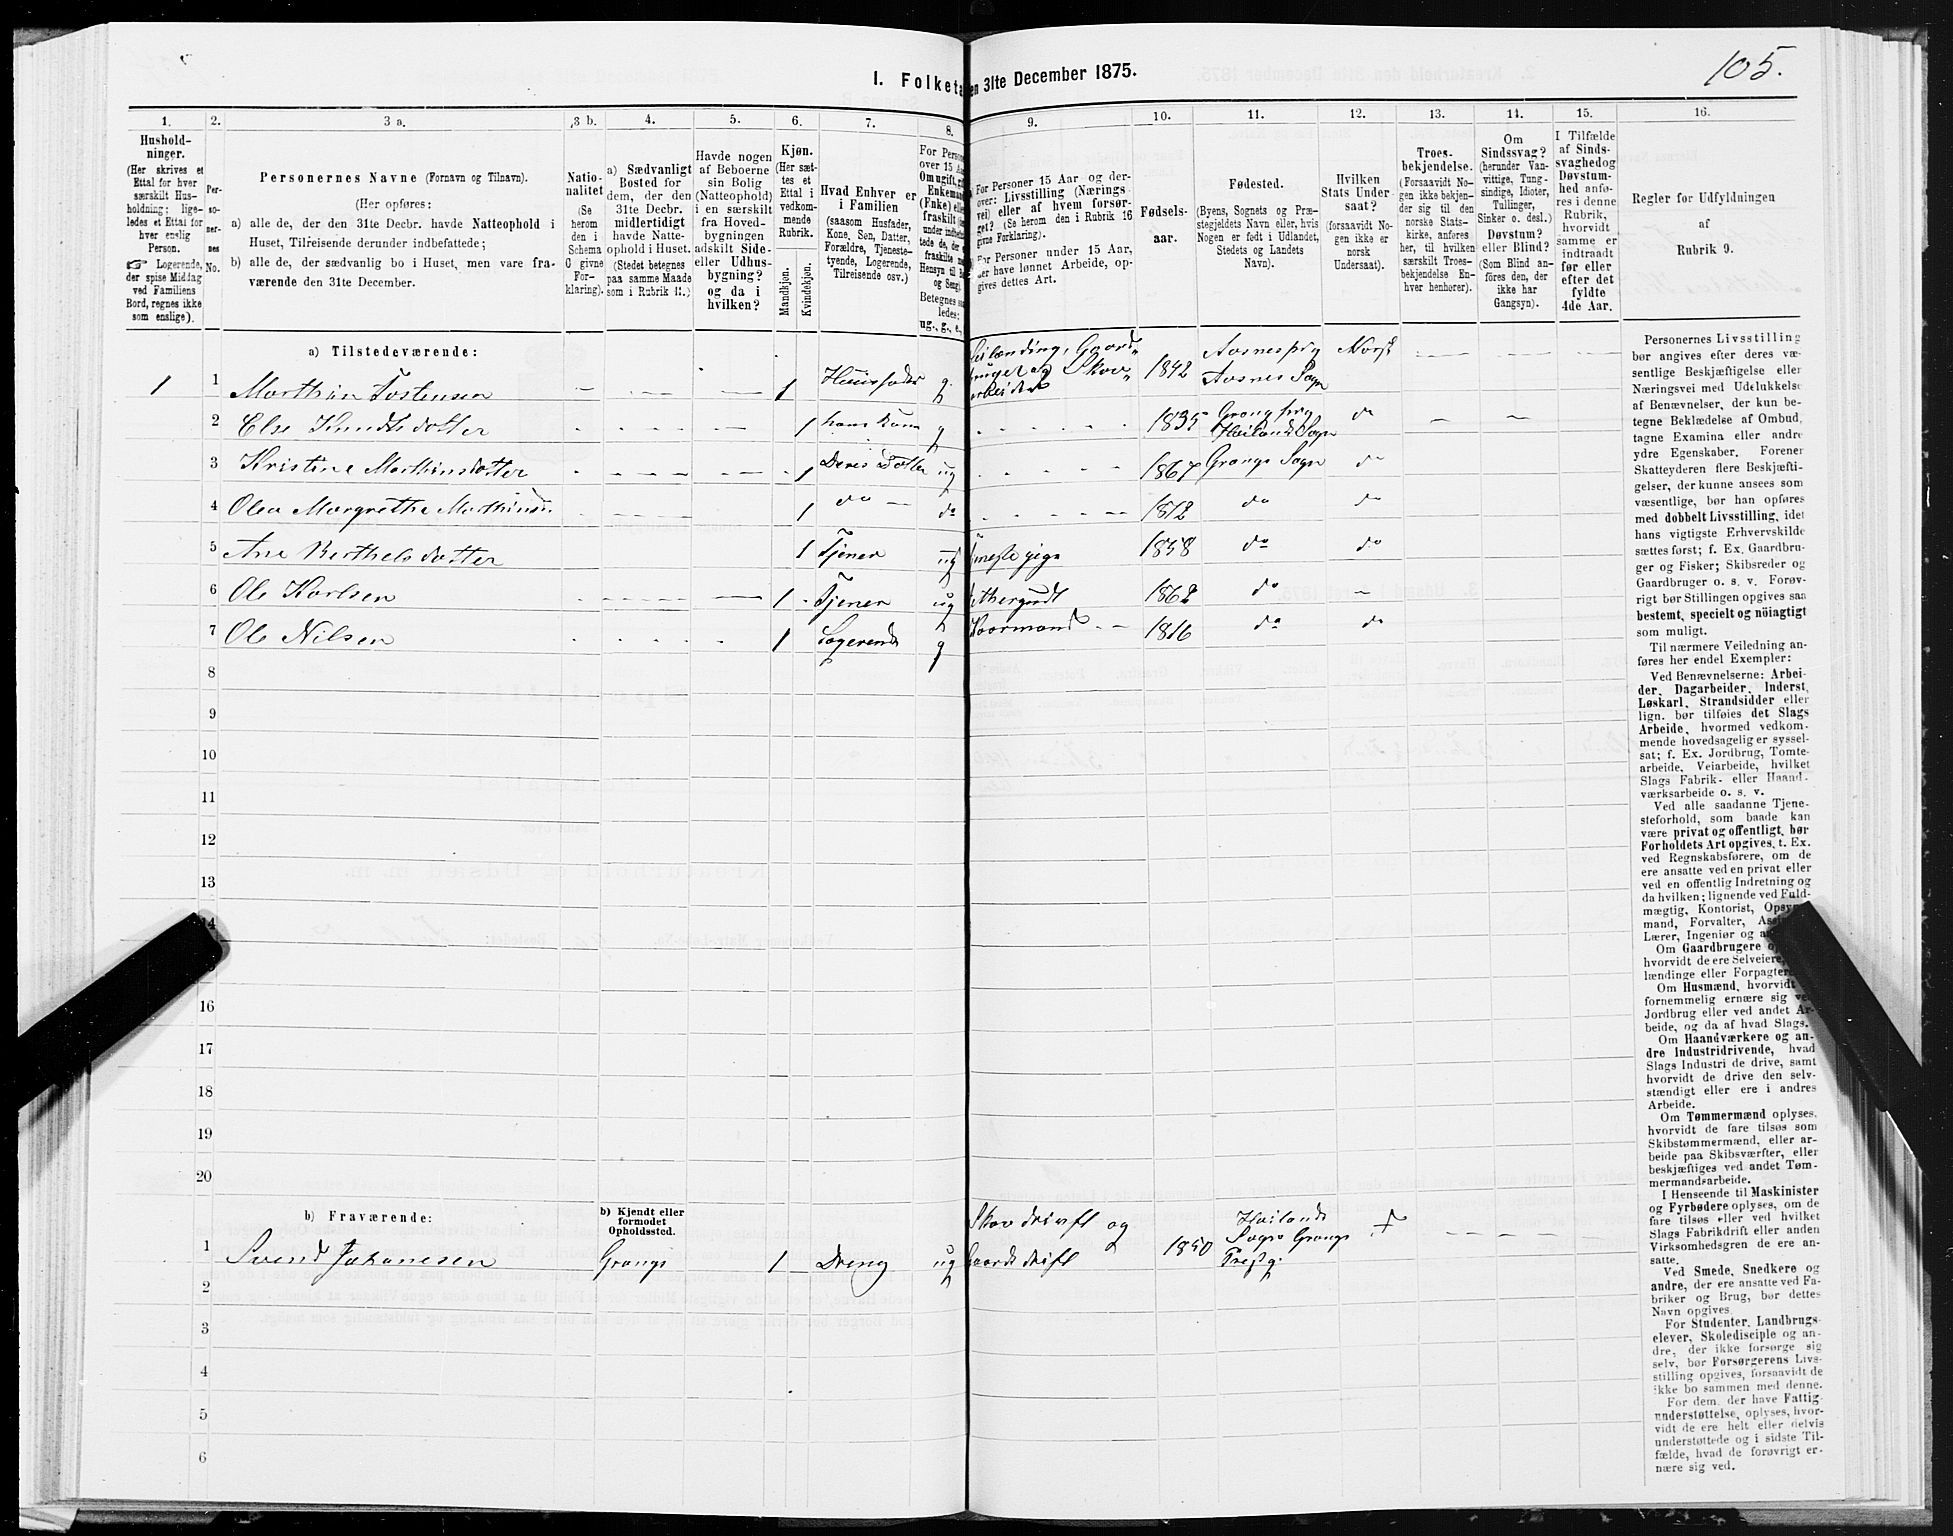 105.
I. Folketa
en 31te December 1875.
1.
2.
3 a.
3 b.
4.
5.
6.
7.
8.
9.
10.
11.
12.
13.
14.
15.
16.
Hushold-
ninger.
(Her skrives et
Ettal for hver
særskilt Hus-
holdning; lige-
ledes et Ettal for
hver enslig
Person.
☞ Logerende,
der spise Middag
ved Familiens
Bord, regnes ikke
som enslige).
Per-
so-
ner-
nes
No.
Personernes Navne (Fornavn og Tilnavn).
(Her opføres:
a) alle de, der den 31te Decbr. havde Natteophold i
Huset, Tilreisende derunder indbefattede;
b) alle de, der sædvanlig bo i Huset, men vare fra-
værende den 31te December.
Natio-
nalitet
(Se
herom
den i
Schema
C givne
For-
klaring).
a) Sædvanligt
Bosted for
dem, der den
31te Decbr.
midlertidigt
havde Natte-
ophold i Huset.
(Stedet betegnes
paa samme Maade
som i Rubrik 11.)
Havde nogen
af Beboerne
sin Bolig
(Natteophold)
i en særskilt
fra Hoved-
bygningen
adskilt Side-
eller Udhus-
bygning?
og da i
hvilken?
Kjøn.
(Her sæt-
tes et
Ettal i
vedkom-
mende
Rubrik.
Mandkjøn.
Kvindekjøn.
Hvad Enhver er
i Familien
(saasom Husfader,
Kone, Søn, Datter,
Forældre, Tjeneste-
tyende, Logerende,
Tilreisende osv.)
For Person
over 15 Aa
Om ugift, gi
Enkeman
(Enke) elle
fraskilt
under indbefat
tede de, der
fraskilte me
Hensyn til B
og Seng).
Betegnes saa
ledes:
ug., g., e.,
For Personer 15 Aar og der-
over: Livsstilling (Nærings-
vei) eller af hvem forsør-
get? (Se herom den i Rubrik 16
givne Forklaring).
For Personer under 15 Aar,
der have lønnet Arbeide, op-
gives dettes Art.
Fødsels-
aar.
Fødested.
(Byens, Sognets og Præ-
stegjeldets Navn eller, hvis
Nogen er født i Udlandet,
Stedets og Landets
Navn).
Hvilken
Stats Under-
saat?
(forsaavidt No-
gen ikke er
norsk
Undersaat).
Troes-
bekjendelse.
(Forsaavidt No-
gen ikke bekjen-
der sig til den
norske Stats-
kirke, anføres
her, til hvilken
særskilt Troes-
bekjendelse En-
hver henhører).
Om
Sindssvag?
(herunder Van-
vittige, Tung-
sindige, Idioter,
Tullinger,
Sinker o. desl.)
Døvstum?
eller Blind?
(Som Blind an-
føres den, der
ikke har
Gangsyn).
I Tilfælde
af Sinds-
svaghed og
Døvstum-
hed anfø-
res i denne
Rubrik,
hvorvidt
samme er
indtraadt
før eller
efter det
fyldte
4de Aar.
Regler for Udfyldningen
af
Rubrik 9.
a) Tilstedeværende:
1 1 Marthin Tostensen — — — 1 Huusfader g. Leilænding, Gaard"
bruget og Skov"
arbeider 1842 Aasnes prg
Aasnes Sogn Norsk — — —
2 Else Knudtsdotter 1 hans Kone g 1835 Grong prg
Høilands Sogn do — —
3 Kristine Marthinsdotter 1 Deres Dotter ug 1867 Grongs Sogn do
4 Olea Margrethe 1 do — do 1872 do do
5 Ane Berthelsdotter 1 Tjener ug 1858 do do
6 Ole Karlsen 1 Tjener ug 1862 do —
7 Ole Nilsen 1 Logerende g 1816 do do
8
9
10
11
12
13
14
16
17
18
19
20
b) Fraværende:
b) Kjendt eller
formodet
Opholdssted.
1 Svend Johanesen Grongs 1 — Dreng ug Skovdrivft og
Gaardsdrift 1850 Høilands
Sogn Grongs
Prestg. — — — —
2
3
4
5
6
Personernes Livsstilling
bør angives efter deres væ-
sentlige Beskjæftigelse eller
Næringsvei med Udelukkelse
af Benævnelser, der kun be-
tegne Beklædelse af Ombud,
tagne Examina eller andre
ydre Egenskaber. Forener
Skatteyderen flere Beskjæfti-
gelser, der kunne ansees som
væsentlige, bør han opføres
med dobbelt Livsstilling, idet
hans vigtigste Erhvervskilde
sættes først; f. Ex. Gaardbru-
ger og Fisker; Skibsreder og
Gaardbruger o. s. v. Forøv-
rigt bør Stillingen opgives saa
bestemt, specielt og nöiagtigt
som muligt.
Til nærmere Veiledning an-
føres her endel Exempler:
Ved Benævnelserne: Arbei-
der, Dagarbeider, Inderst,
Løskarl, Strandsidder eller
lign. bør tilføies det Slags
Arbeide, hvormed vedkom-
mende hovedsagelig er syssel-
sat; f. Ex. Jordbrug, Tomte-
arbeide, Veiarbeide, hvilket
Slags Fabrik- eller Haand-
værksarbeide o. s. v.
Ved alle saadanne Tjene-
steforhold, som baade kan
være privat og offentligt, bør
Forholdets Art opgives, t. Ex.
ved Regnskabsførere, om de
ere ansatte ved en privat eller
ved en offentlig Indretning og
da hvilken; lignende ved Fuld-
mægtig, Kontorist, Opsyns-
mand, Forvalter,
Lærer, Ingeniør og
Om Gaardbrugere
hvorvidt de ere Selveiere,
lændinge eller Forpagtere
Om Husmænd, hvorvidt
fornemmelig ernære sig ve
Jordbrug eller ved andet Ar-
beide, og da af hvad Slags.
Om Haandværkere og an-
dre Industridrivende, hvad
Slags Industri de drive, samt
hvorvidt de drive den selv-
stændigt eller ere i andres
Arbeide.
Om Tømmermænd oplyses,
hvorvidt de fare tilsøs som
Skibstømmermænd, eller ar-
beide paa Skibsværfter, eller
beskjæftiges ved andet Tøm-
mermandsarbeide.
I Henseende til Maskinister
og Fyrbødere oplyses, om de
fare tilsøs eller ved hvilket
Slags Fabrikdrift eller anden
Virksomhedsgren de ere an-
satte.
Ved Smede, Snedkere og
andre, der ere ansatte ved Fa-
briker og Brug, bør dettes
Navn opgives.
For Studenter, Landbrugs-
elever, Skoledisciple og an-
dre, der ikke forsørge sig
selv, bør Forsørgerens Livs-
stilling opgives, forsaavidt de
ikke bo sammen med denne.
For dem, der have Fattig-
understøttelse, oplyses, hvor-
vidt de ere helt eller delvis
understøttede og i sidste Til-
fælde, hvad de forøvrigt er-
nære sig ved.